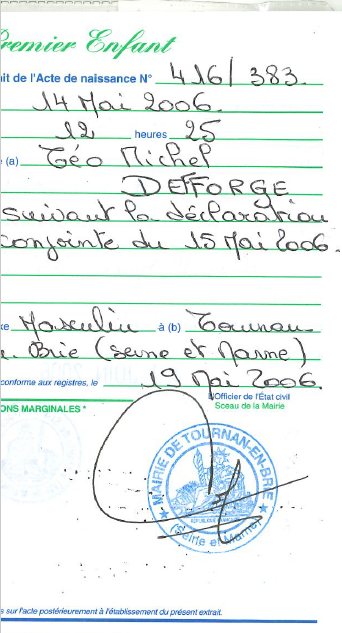 Premier Enfant
it de l'Acte de naissance N° 416/383.
14 Mai 2006.
12 heures 25
(a) Téo Michel
DEFFORGE
suivant la déclaration
conjointe du 15 Mai 2006.
xe Masculin à (b) Tournan
Brie (Seine et Marne)
conforme aux registres, le 19 Mai 2006.
L'Officier de l'État civil
Sceau de la Mairie
ONS MARGINALES *
MAIRIE DE TOURNAN-EN-BRIE
RÉPUBLIQUE FRANÇAISE
(Seine et Marne)
s sur l'acte postérieurement à l'établissement du présent extrait.